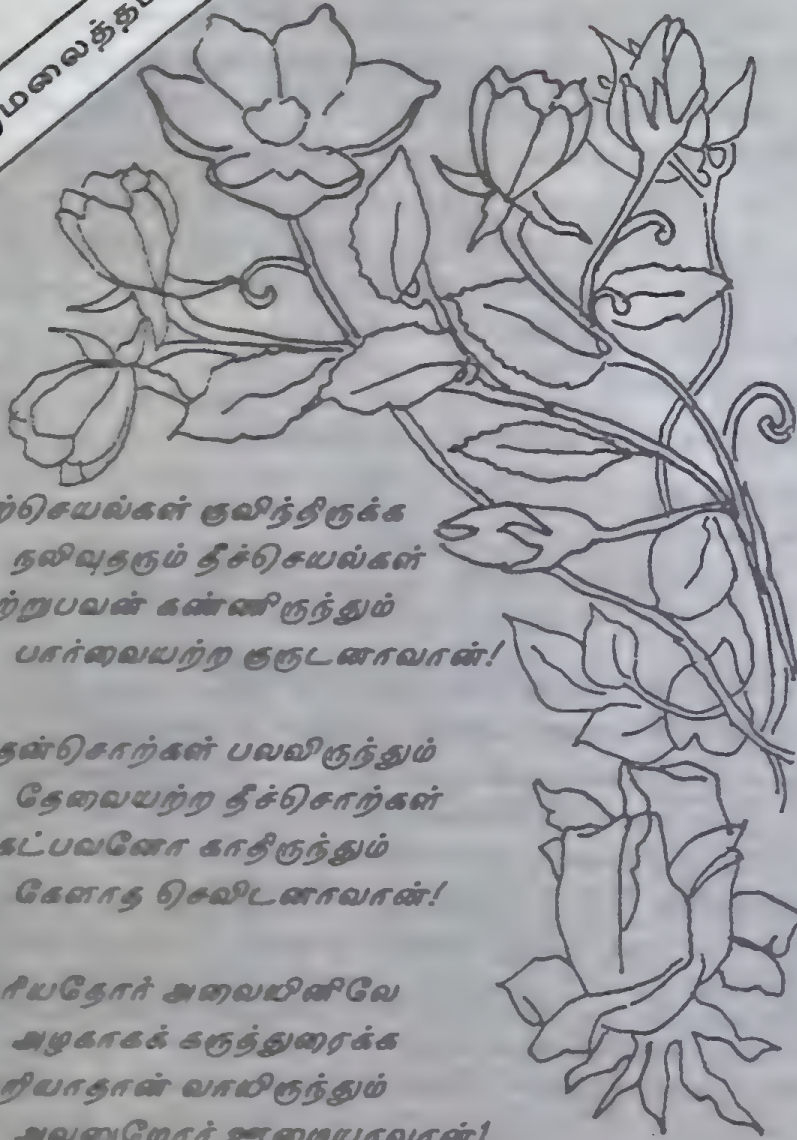 மலைத்த
ற்செயல்கள் குவிந்திருக்க
நலிவுதரும் தீச்செயல்கள்
ற்றுபவன் கண்ணிருந்தும்
பார்வையற்ற குருடனாவான்!
தன்சொற்கள் பலவிருந்தும்
தேவையற்ற தீச்சொற்கள்
கட்பவனோ காதிருந்தும்
கேளாத செவிடனாவான்!
ரியதோர் அவையினிலே
அழகாகக் கருத்துரைக்க
றியாதான் வாயிருந்தும்
அவனுமோர் ஊமையாவான்!